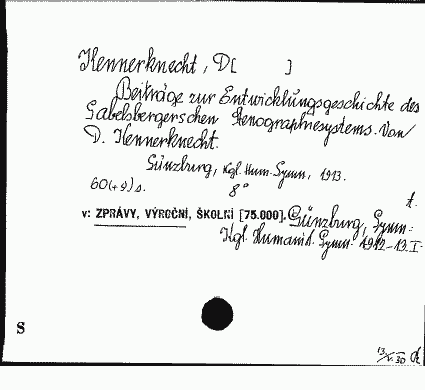 Hennerknecht, D[ ]
Beiträge zur Entwicklungsgeschichte des
Gabelsbergerschen Stenographiesystems. Von
D. Hennerknecht.
Günzburg, Kgl. Hum. Gymn., 1913.
60(+9)s. 8°
t.
v: ZPRÁVY, VÝROČNÍ, ŠKOLNÍ [75.000]. Günzburg, Gymn:
Kgl. Humanist. Gymn. 1912-13. I.
S